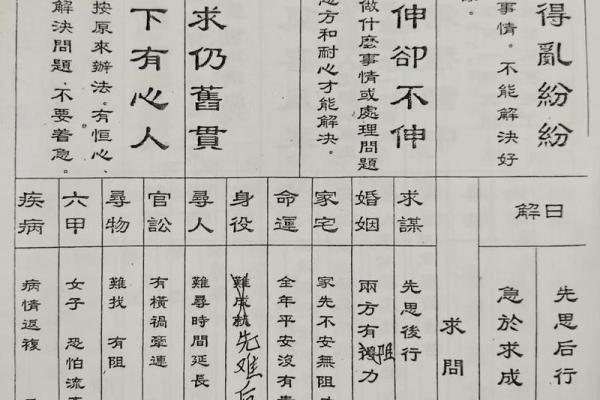 得亂紛紛
事情。不能解決好
伸卻不伸
做什麼事情或處理問題
方和耐心才能解決。
求仍舊貫
下有心人
按原來辦法。有恒心、
解決問題、不要着急。
日解
先思后行
急於求成
求問
求謀
先思後行
婚姻
兩方有阻力
家宅
家先不安無阻
命運
全年平安沒有
身役
難成就先难后
尋人
難尋時間延長
官訟
有橫禍牽連
尋物
難找 有阻
六甲
女子 恐怕流
疾病
病情返複